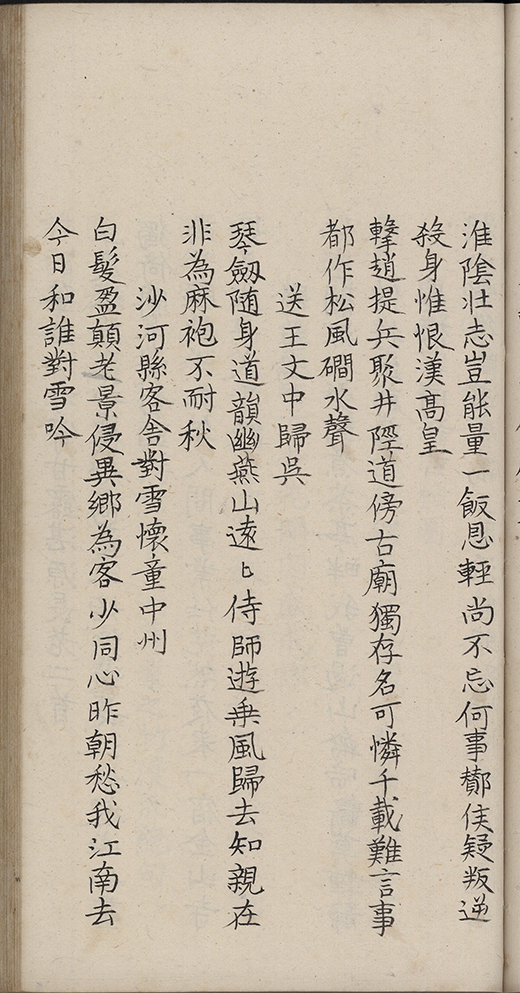 淮陰壯志豈能量一飯恩輕尚不忘何事鄼侯疑叛逆
殺身惟恨漢高皇
擊趙提兵聚井陘道傍古廟獨存名可憐千載難言事
都作松風磵水聲
送王文中歸吳
琴劔随身道韻幽燕山遠〻侍師遊乗風歸去知親在
非為麻袍不耐秋
沙河縣客舎對雪懷童中州
白髮盈顛老景侵異鄉為客少同心昨朝愁我江南去
今日和誰對雪吟